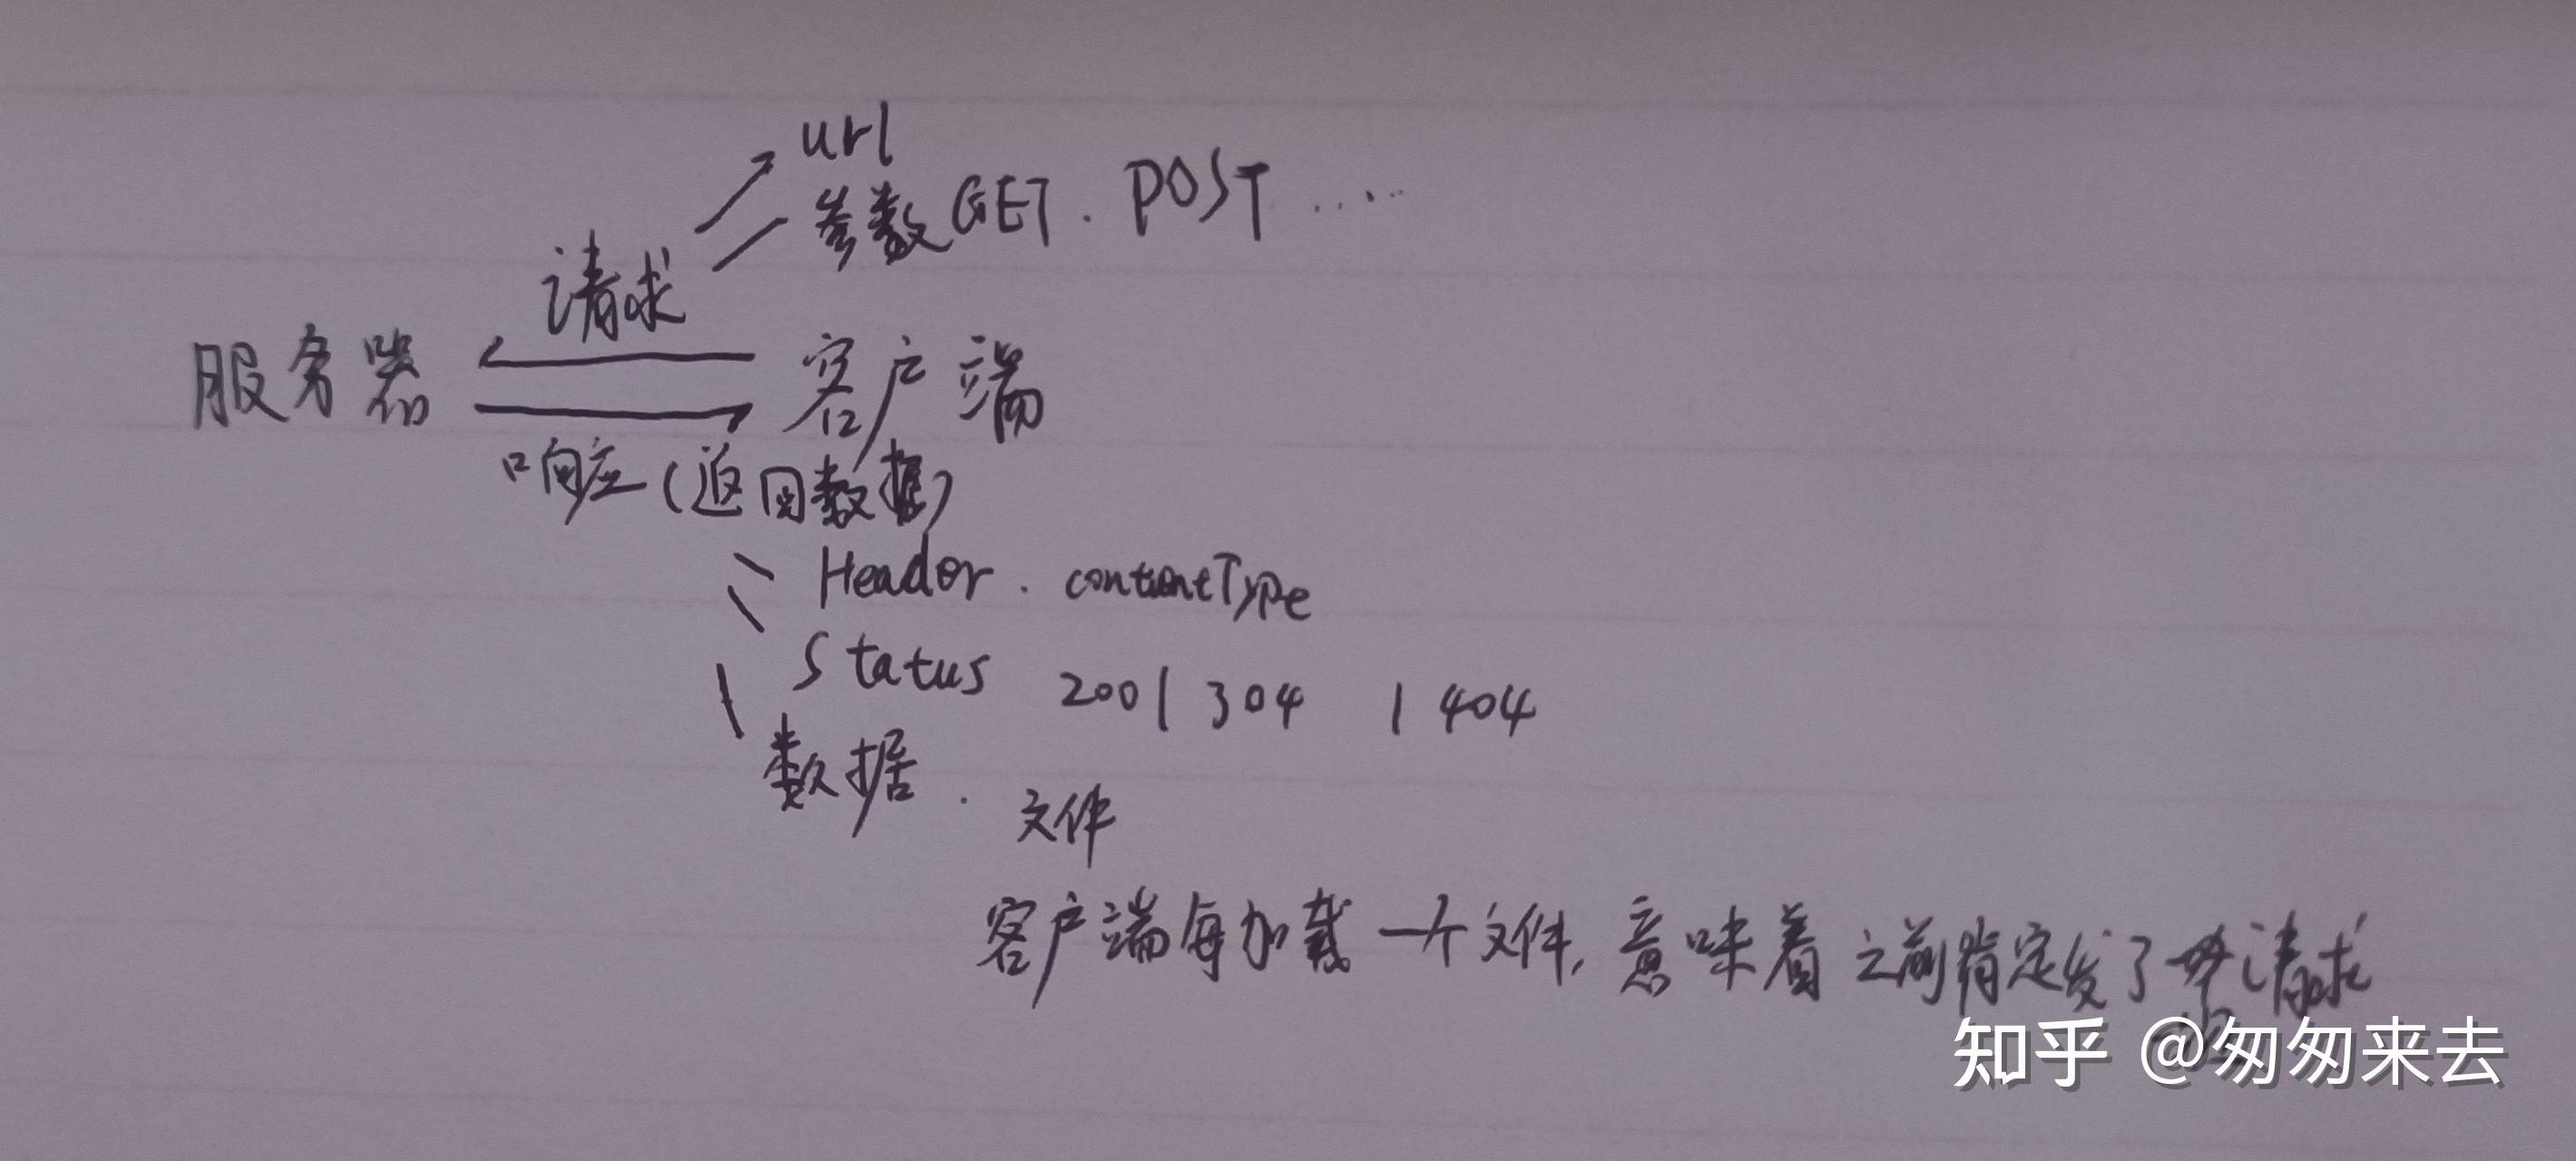 url
参数 GET. POST ......
请求
服务器 客户端
响应(返回数据)
Header. contentType
Status 200 | 304 | 404
数据.
文件
客户端每加载一个文件, 意味着之前肯定发了请求
知乎 @匆匆来去